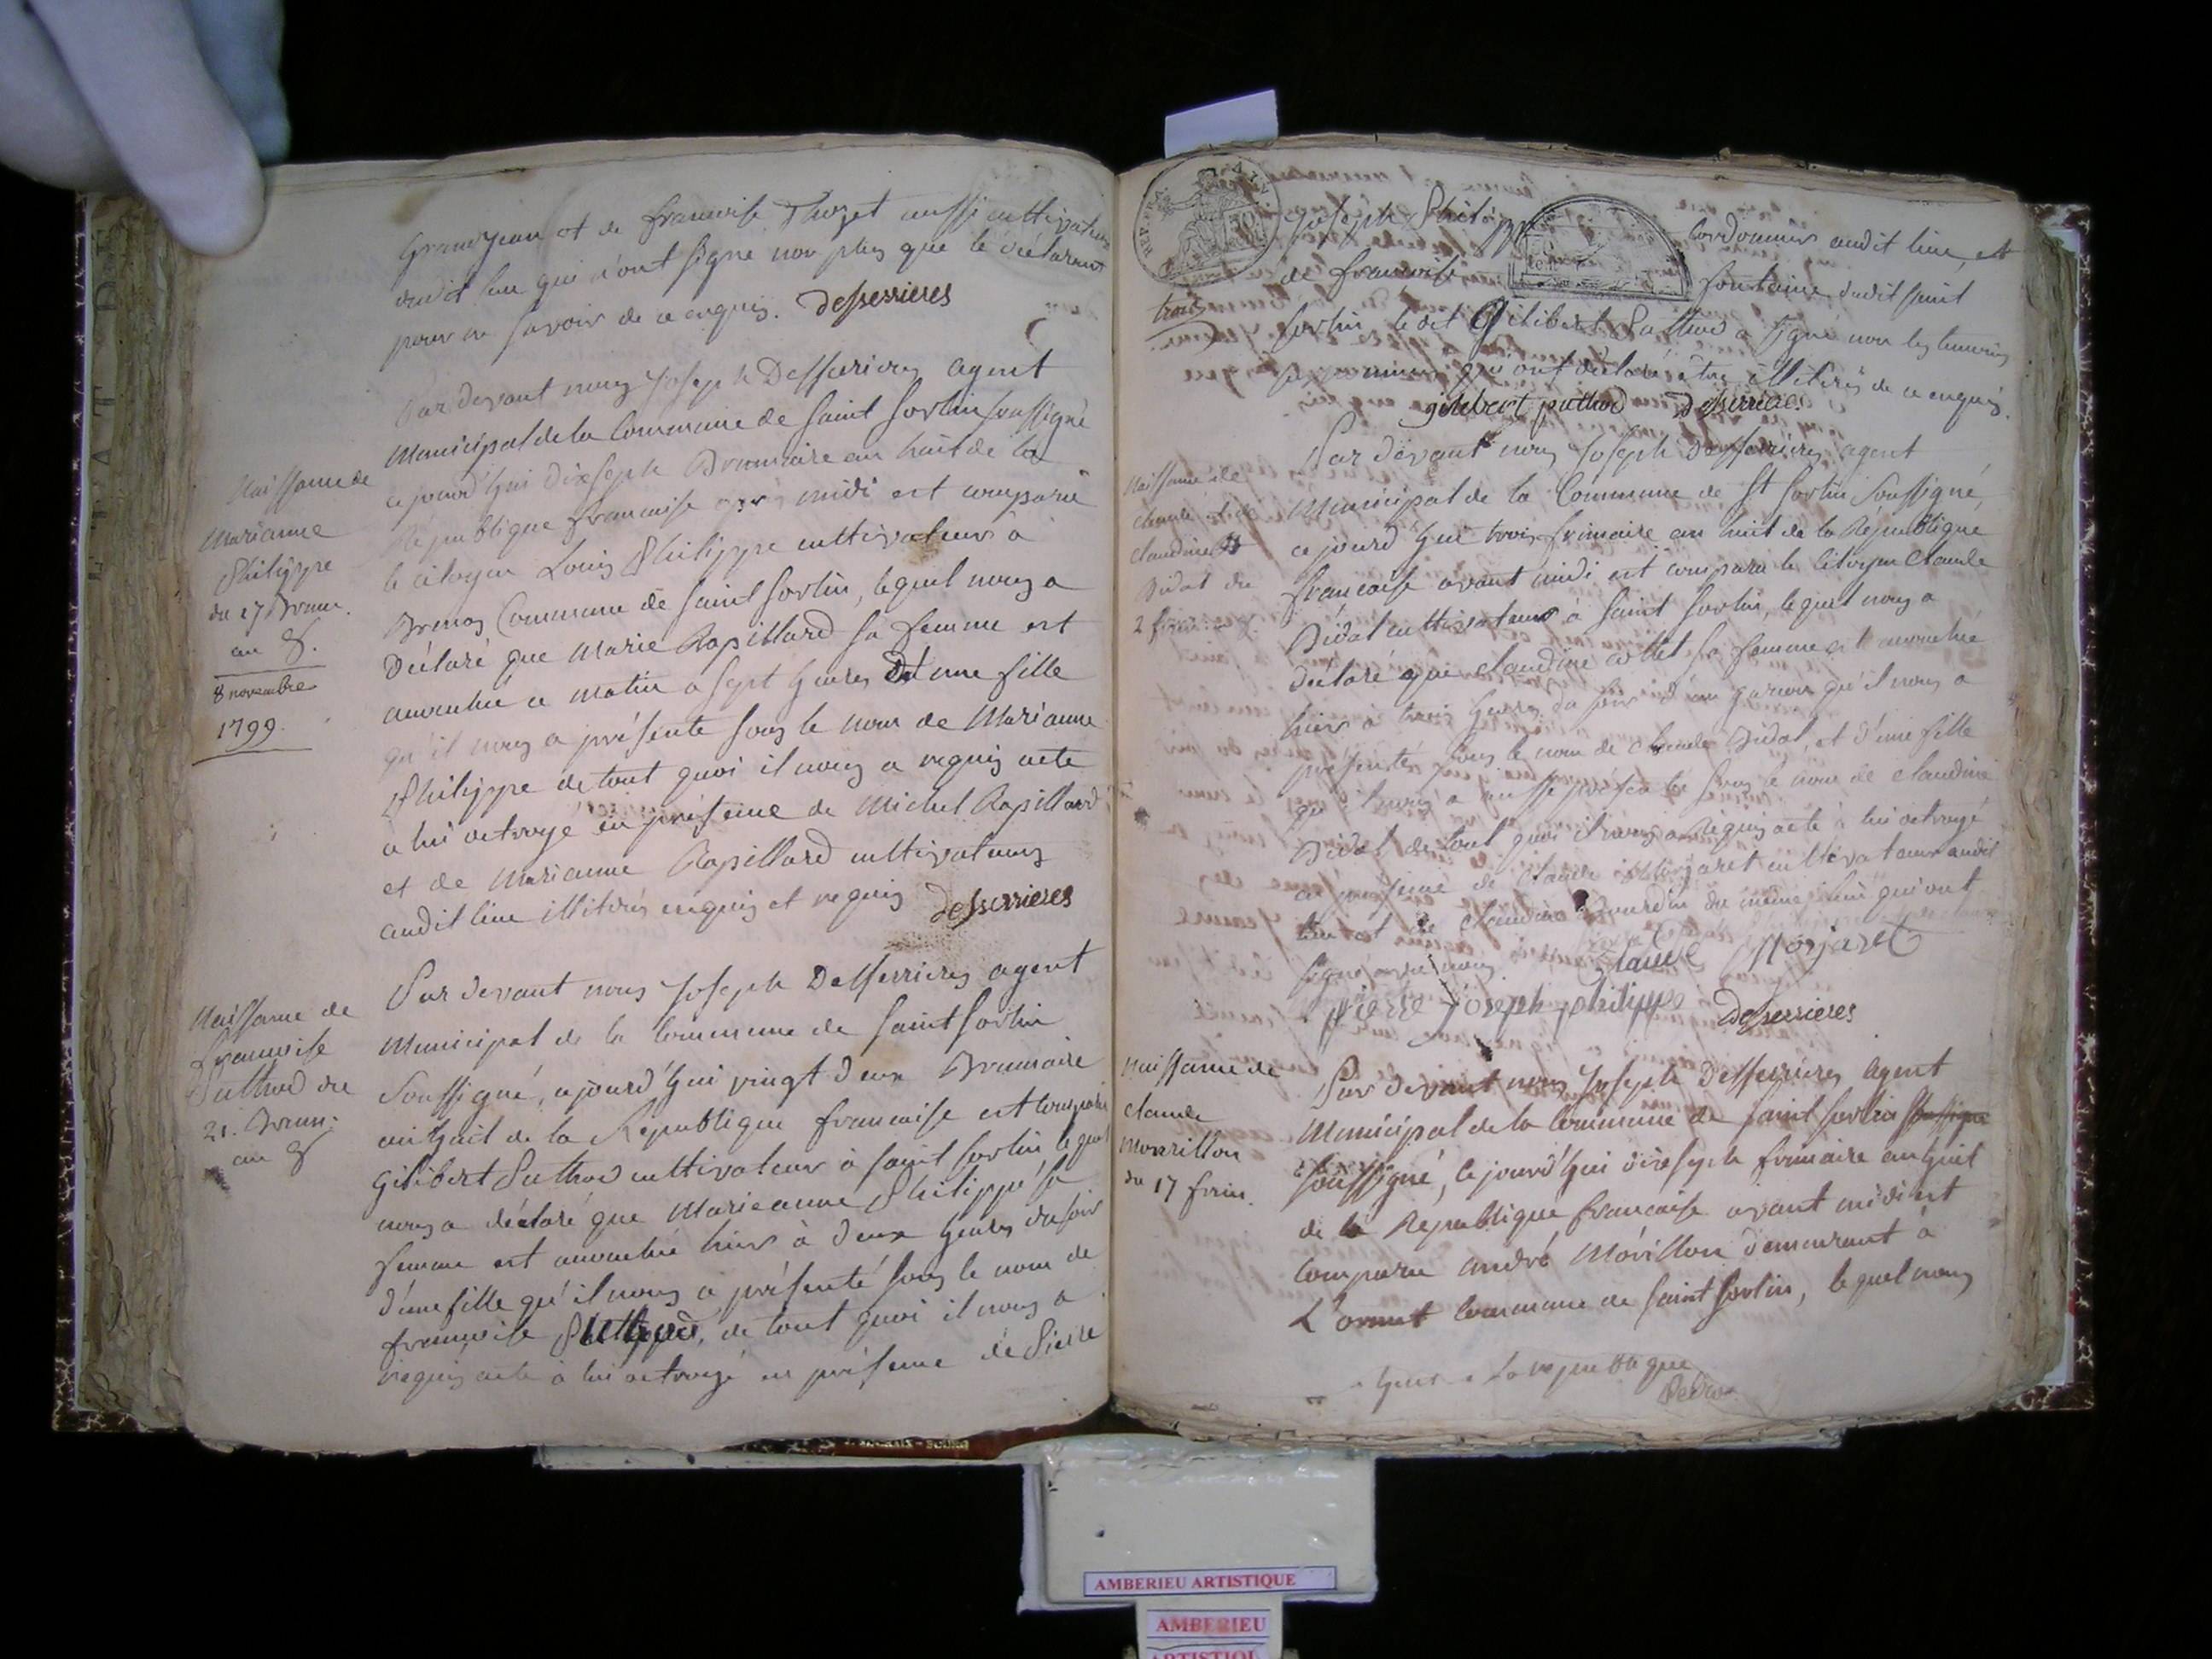 Grandjean et de francoise Thozet aussi cultivateurs
dudit lieu qui n'ont signé non plus que le déclarant
pour ne savoir de ce enquis. desserrieres
Naissance de
Marianne
Philippe
du 17 Brum.
an 8.
8 novembre
1799.
Par devant nous Joseph Desserrieres agent
Municipal de la Commune de Saint Sorlin soussigné
ce jourd'hui dixsept Brumaire an huit de la
République francaise après midi est comparu
le citoyen Louis Philippe cultivateur à
Brenas Commune de Saint Sorlin, lequel nous a
Déclaré que Marie Rapillard sa femme est
accouchée ce matin a sept heures D'une fille
qu'il nous a présenté sous le nom de Marianne
Philippe de tout quoi il nous a requis acte
a lui octroyé en présence de Michel Rapillard
et de Marianne Rapillard cultivateurs
audit lieu illitérés enquis et requis desserrieres
Naissance de
francoise
Puthod du
21. Brum:
an 8
Par devant nous Joseph Desserrieres agent
Municipal de la Commune de Saint Sorlin
Soussigné, ajourd'hui vingt deux Brumaire
an huit de la République francaise est comparu
Gilibert Puthod cultivateur à Saint Sorlin lequel
nous a déclaré que Marieanne Philippe sa
femme est accouchée hier à deux heures du soir
d'une fille qu'il nous a présenté sous le nom de
francoise Puthod, de tout quoi il nous a
requis acte à lui octroyé en présence de Pierre
REP. FRA.
Joseph Philippe cordonnier audit lieu, et
de francoise fontaine dudit Saint
Sorlin le dit Gilibert Puthod a signé non les temoins
qui ont déclaré être illitérés de ce enquis.
gilibert puthod Desserrieres
Naissance de
claude et de
claudine
Bidat du
2 frim.
Par devant nous Joseph Desserrieres agent
Municipal de la Commune de St Sorlin Soussigné,
ce jourd'hui trois frimaire an huit de la République
francaise avant midi est comparu le Citoyen Claude
Bidat cultivateur à Saint Sorlin, lequel nous a
Déclaré que claudine collet sa femme est accouchée
hier à trois heures du soir d'un garcon qu'il nous a
présenté sous le nom de claude Bidat, et d'une fille
qu'il nous a aussi présenté sous le nom de claudine
Bidat de tout quoi il nous a requis acte à lui octroyé
en présence de Claude Morjaret cultivateur audit
lieu et de claudine Bourdin du même lieu qui ont
signé avec nous. Claude Morjaret
pierre joseph philippe desserrieres
naissance de
claude
Morrillon
du 17 frim.
Par devant nous Joseph Desserrieres Agent
Municipal de la Commune de Saint Sorlin soussigné
Soussigné, ce jourd'hui dixsept frimaire an huit
de la République francaise avant midi est
Comparu andré Morillon demeurant à
L'orant Commune de Saint Sorlin, lequel nous
la republique
AMBERIEU ARTISTIQUE
AMBERIEU
ARTISTIQUE